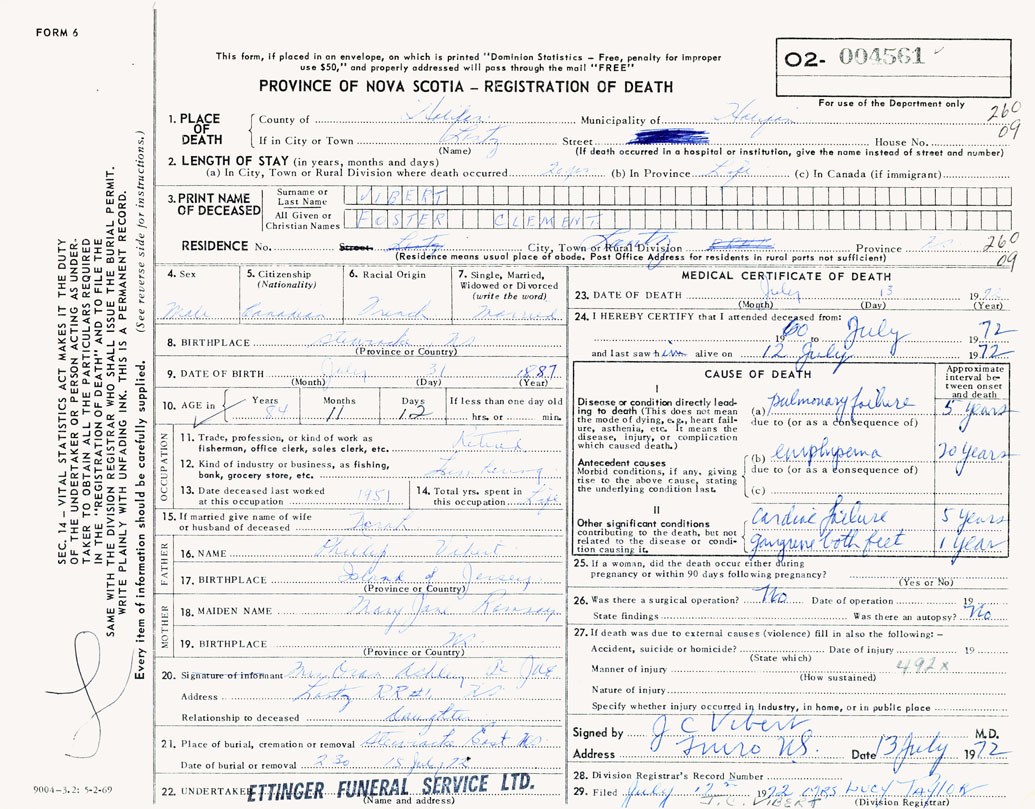 FORM 6
O2- 004561
This form, if placed in an envelope, on which is printed "Dominion Statistics – Free, penalty for improper
use $50," and properly addressed will pass through the mail "FREE"
PROVINCE OF NOVA SCOTIA – REGISTRATION OF DEATH
For use of the Department only
260
09
1. PLACE OF DEATH
County of Halifax Municipality of Halifax
If in City or Town Lantz Street House No.
(Name) (If death occurred in a hospital or institution, give the name instead of street and number)
2. LENGTH OF STAY (in years, months and days)
(a) In City, Town or Rural Division where death occurred (b) In Province Life (c) In Canada (if immigrant)
3. PRINT NAME OF DECEASED
Surname or Last Name VIBERT
All Given or Christian Names FOSTER CLEMENT
RESIDENCE No. Street Lantz City, Town or Rural Division Lantz Province NS
260
09
(Residence means usual place of abode. Post Office Address for residents in rural parts not sufficient)
4. Sex
Male
5. Citizenship
(Nationality)
Canadian
6. Racial Origin
French
7. Single, Married,
Widowed or Divorced
(write the word)
Married
8. BIRTHPLACE Stewiacke NS
(Province or Country)
9. DATE OF BIRTH July 31 1887
(Month) (Day) (Year)
10. AGE in Years 84 Months 11 Days 12 If less than one day old
hrs. or min.
OCCUPATION
11. Trade, profession, or kind of work as
fisherman, office clerk, sales clerk, etc. Retired
12. Kind of industry or business, as fishing,
bank, grocery store, etc. Lumbering
13. Date deceased last worked
at this occupation 1951
14. Total yrs. spent in
this occupation Life
15. If married give name of wife
or husband of deceased Norah
FATHER
16. NAME Phillip Vibert
17. BIRTHPLACE Island of Jersey
(Province or Country)
MOTHER
18. MAIDEN NAME Mary Jane Ramsay
19. BIRTHPLACE NS
(Province or Country)
20. Signature of informant Mrs Ashley
Address Lantz RR#1 NS
Relationship to deceased Daughter
21. Place of burial, cremation or removal Stewiacke East NS
Date of burial or removal 2 30 15 July 72
22. UNDERTAKER ETTINGER FUNERAL SERVICE LTD.
(Name and address)
MEDICAL CERTIFICATE OF DEATH
23. DATE OF DEATH July 13 1972
(Month) (Day) (Year)
24. I HEREBY CERTIFY that I attended deceased from:
1960 to July 1972
and last saw him alive on 12 July 1972
CAUSE OF DEATH
Approximate
interval be-
tween onset
and death
I
Disease or condition directly lead-
ing to death (This does not mean
the mode of dying, e.g., heart fail-
ure, asthenia, etc. It means the
disease, injury, or complication
which caused death.)
(a) pulmonary failure 5 years
due to (or as a consequence of)
Antecedent causes
Morbid conditions, if any, giving
rise to the above cause, stating
the underlying condition last.
(b) emphysema 20 years
due to (or as a consequence of)
(c)
II
Other significant conditions
contributing to the death, but not
related to the disease or condi-
tion causing it.
Cardiac failure 5 years
Gangrene both feet 1 year
25. If a woman, did the death occur either during
pregnancy or within 90 days following pregnancy?
(Yes or No)
26. Was there a surgical operation? No Date of operation 19
State findings Was there an autopsy? No
27. If death was due to external causes (violence) fill in also the following: –
Accident, suicide or homicide? Date of injury 19
(State which)
Manner of injury 492x
(How sustained)
Nature of injury
Specify whether injury occurred in industry, in home, or in public place
Signed by J C Vibert M.D.
Address Truro N.S. Date 13 July 1972
28. Division Registrar's Record Number
29. Filed July 1972 MRS LUCY TAYLOR
J.C. VIBERT (Division Registrar)
SEC. 14 – VITAL STATISTICS ACT MAKES IT THE DUTY
OF THE UNDERTAKER OR PERSON ACTING AS UNDER-
TAKER TO OBTAIN ALL THE PARTICULARS REQUIRED
IN THE "REGISTRATION OF DEATH" AND TO FILE THE
SAME WITH THE DIVISION REGISTRAR WHO SHALL ISSUE THE BURIAL PERMIT.
WRITE PLAINLY WITH UNFADING INK. THIS IS A PERMANENT RECORD.
Every item of information should be carefully supplied. (See reverse side for instructions.)
9004-3.2: 5-2-69